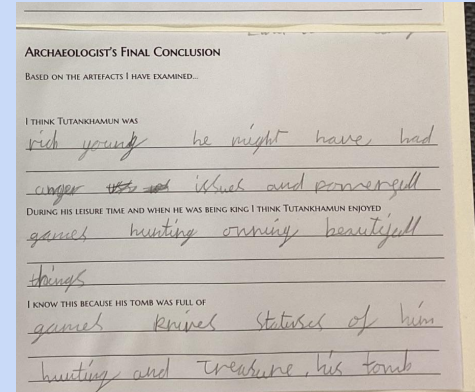 ARCHAEOLOGIST'S FINAL CONCLUSION
BASED ON THE ARTEFACTS I HAVE EXAMINED...
I THINK TUTANKHAMUN WAS
rich young he might have had
anger issues and powergull
DURING HIS LEISURE TIME AND WHEN HE WAS BEING KING I THINK TUTANKHAMUN ENJOYED
games hunting onning beautifull
things
I KNOW THIS BECAUSE HIS TOMB WAS FULL OF
games knives statuses of him
hunting and treasure, his tomb